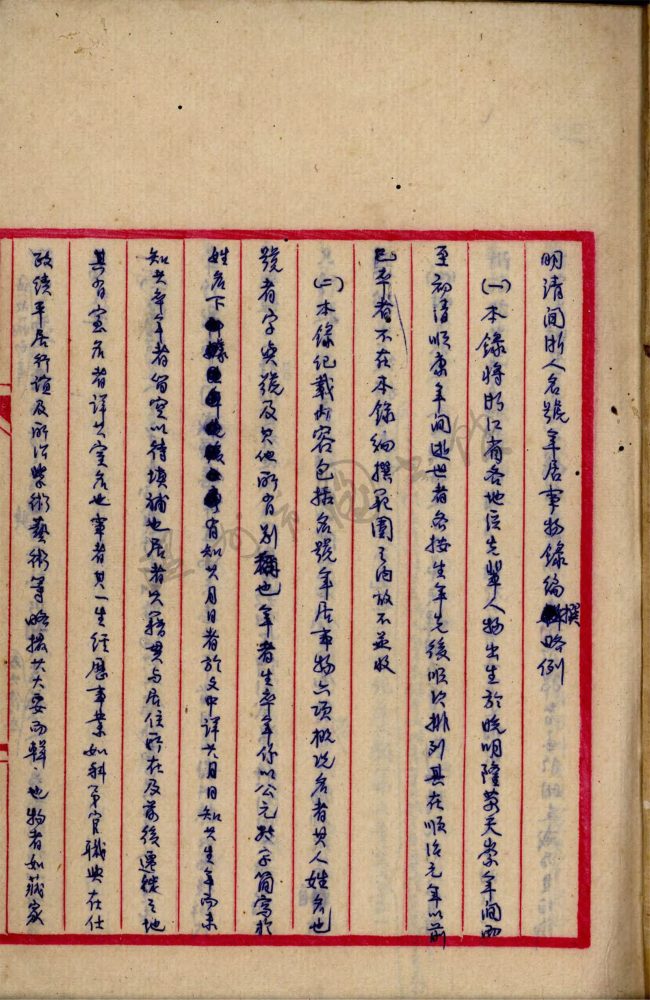 明清間浙人名號年居事物錄編撰略例
(一)本錄將浙江省各地區先輩人物出生於晚明隆萬天崇年間而
至初清順康年間逝世者各按生年先後順次排列其在順治元年以前
已卒者不在本錄編撰範圍之內故不並收
(二)本錄紀載內容包括名號年居事物六項概說名者其人姓名也
號者字與號及其他所有別稱也年者生卒年係以公元数字简寫於
姓名下 有知其月日者於文中詳其月日知其生年而未
知其卒年者留空以待填補也居者其籍貫与居住所在及前後遷移之地
其有室名者詳其室名也事者其一生經歷事業如科第官職與在仕
政績平居行誼及所治學術藝術等略撮其大要而輯之也物者如藏家